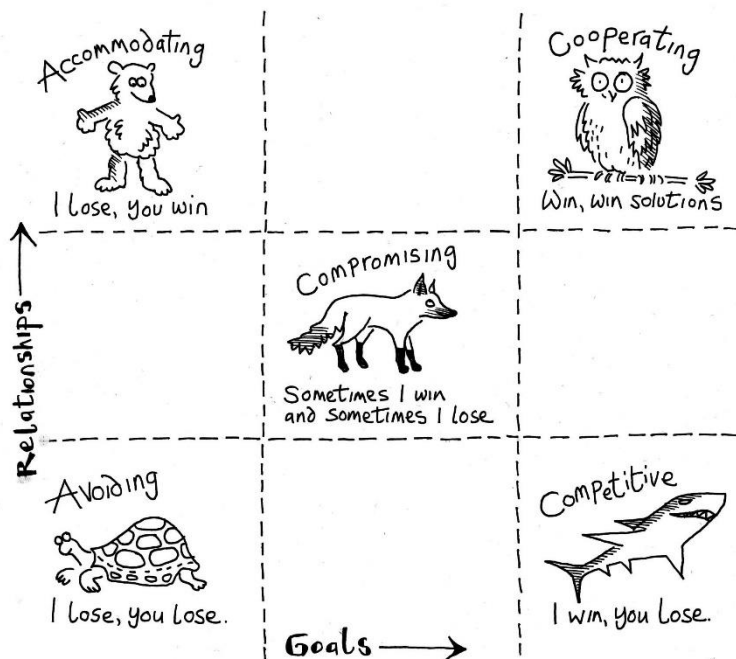 Accommodating
I lose, you win
Cooperating
Win, win solutions
Relationships
Compromising
Sometimes I win
and sometimes I lose
Avoiding
I lose, you lose.
Competitive
I win, you lose.
Goals